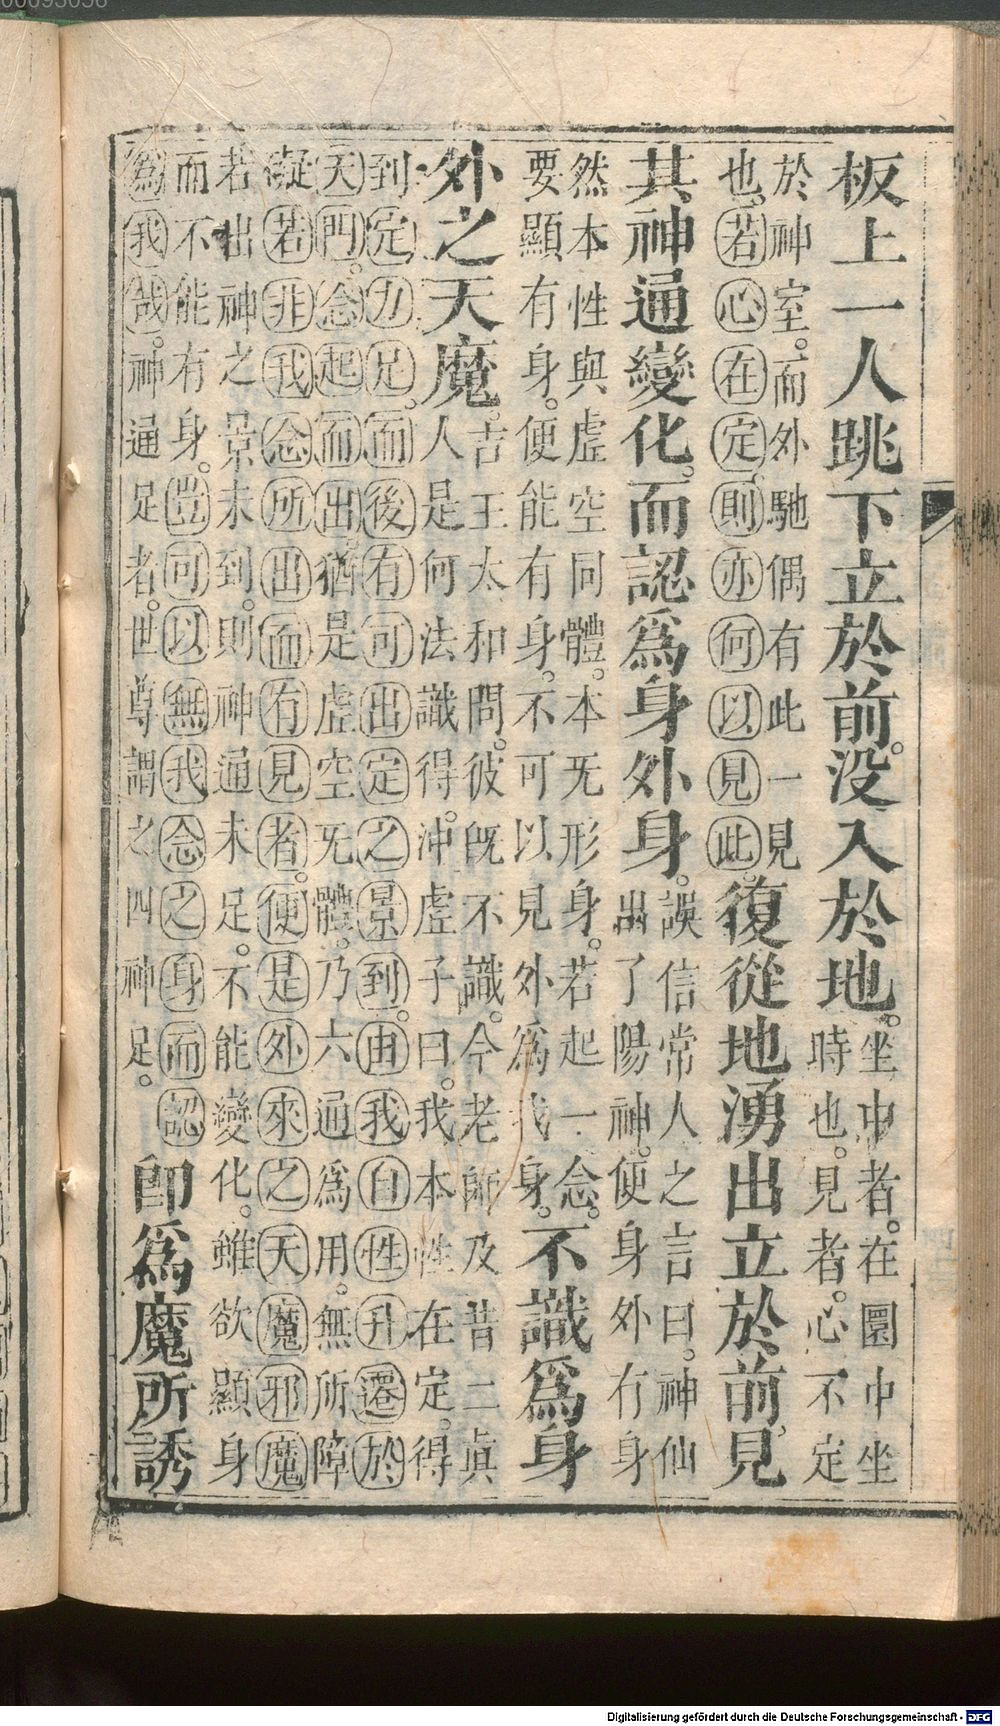 板上一人跳下立於前。没入於地。
坐中者。在圜中坐
時也。見者。心不定
於神室。而外馳偶有此一見
也。若心在定則亦何以見此。
復從地湧出立於前。見
其神通變化。而認爲身外身。
誤信常人之言曰。神仙
出了陽神。便身外有身
然本性與虛空同體。本无形身。若起一念。
要顯有身。便能有身。不可以見外爲我身。
不識爲身
外之天魔。
吉王太和問。彼旣不識。今老師及昔二眞
人是何法識得。冲虛子曰。我本性在定。得
到定力足。而後有可出定之景到。由我自性升遷於
天門。念起而出。猶是虛空无體。乃六通爲用。無所障
礙若非我念所出而有見者。便是外來之天魔邪魔
若出神之景未到。則神通未足。不能變化。雖欲顯身
而不能有身。豈可以無我念之身而認
爲我哉。神通足者。世尊謂之四神足。
卽爲魔所誘。
Digitalisierung gefördert durch die Deutsche Forschungsgemeinschaft - DFG